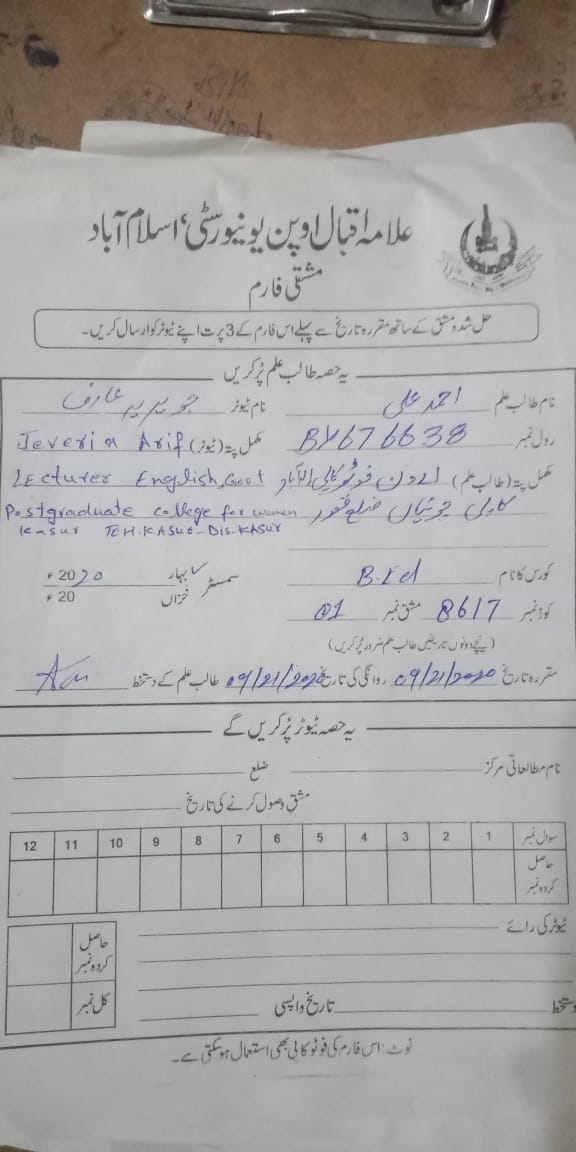 علامہ اقبال اوپن یونیورسٹی، اسلام آباد
مشقی فارم
حل شدہ مشق کے ساتھ مقررہ تاریخ سے پہلے اس فارم کے 3 پرت اپنے ٹیوٹر کو ارسال کریں۔
یہ حصہ طالب علم پُر کریں
نام طالب علم احمد علی نام ٹیوٹر جویریہ عارف
رول نمبر BY676638 مکمل پتہ (ٹیوٹر) Jeveria Arif
مکمل پتہ (طالب علم) فوٹو کاپی الہٰ آباد Lecturer English, Govt
چونیاں ضلع قصور Postgraduate college for women
Kasur TEH.KASUR-DIS.KASUR
کورس کا نام B.Ed سمسٹر بہار ✓ 2020 ء
خزاں 20 ء
کوڈ نمبر 8617 مشق نمبر 01
(نیچے دونوں تاریخیں طالب علم ضرور پُر کریں)
مقررہ تاریخ 09/21/2020 روانگی کی تاریخ 09/21/2020 طالب علم کے دستخط
یہ حصہ ٹیوٹر پُر کریں گے
نام مطالعاتی مرکز ضلع
مشق وصول کرنے کی تاریخ
سوال نمبر 1 2 3 4 5 6 7 8 9 10 11 12
حاصل کردہ نمبر
ٹیوٹر کی رائے
حاصل کردہ نمبر
کل نمبر
دستخط تاریخ واپسی
نوٹ: اس فارم کی فوٹو کاپی بھی استعمال ہو سکتی ہے۔